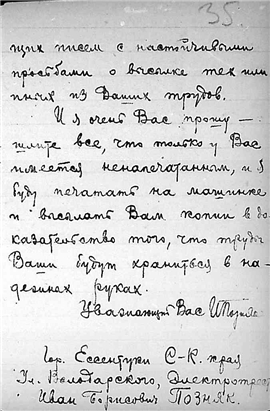 35.
щих писем с настойчивыми
просьбами о высылке тех или
иных из Ваших трудов.
И я очень Вас прошу —
шлите все, что только у Вас
имеется ненапечатанным, и я
буду печатать на машинке
и высылать Вам копии в до-
казательство того, что труды
Ваши будут храниться в на-
дежных руках.
Уважающий Вас ИПозняк
Гор. Ессентуки С-К. края
Ул. Володарского, Электротрест
Иван Борисович ПОЗНЯК.